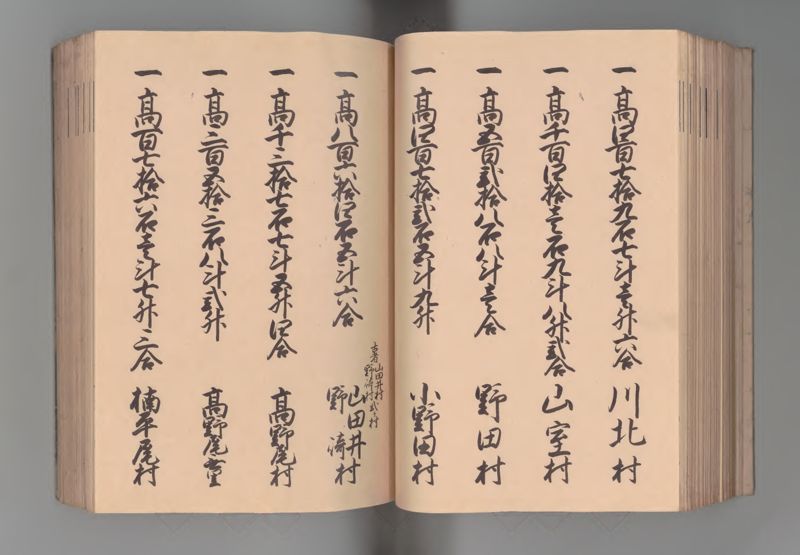 一 高四百七拾九石七斗壱升六合 川北村
一 高千百四拾壱石九斗八升弐合 山室村
一 高五百弐拾八石八斗壱合 野田村
一 高四百七拾弐石五斗九升 小野田村
古者山田井村
野崎村弐ヶ村
一 高八百六拾四石五斗六合 山田井村
野崎
一 高千三拾七石七斗五升四合 高野尾村
一 高三百五拾三石八斗弐升 高野尾
一 高百七拾六石壱斗七升三合 楠平尾村